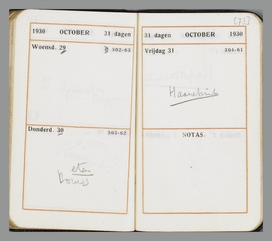 1930 OCTOBER 31 dagen
Woensd. 29 302-63
Donderd. 30 303-62
eten
[73]
31 dagen OCTOBER 1930
Vrijdag 31 304-61
NOTAS.